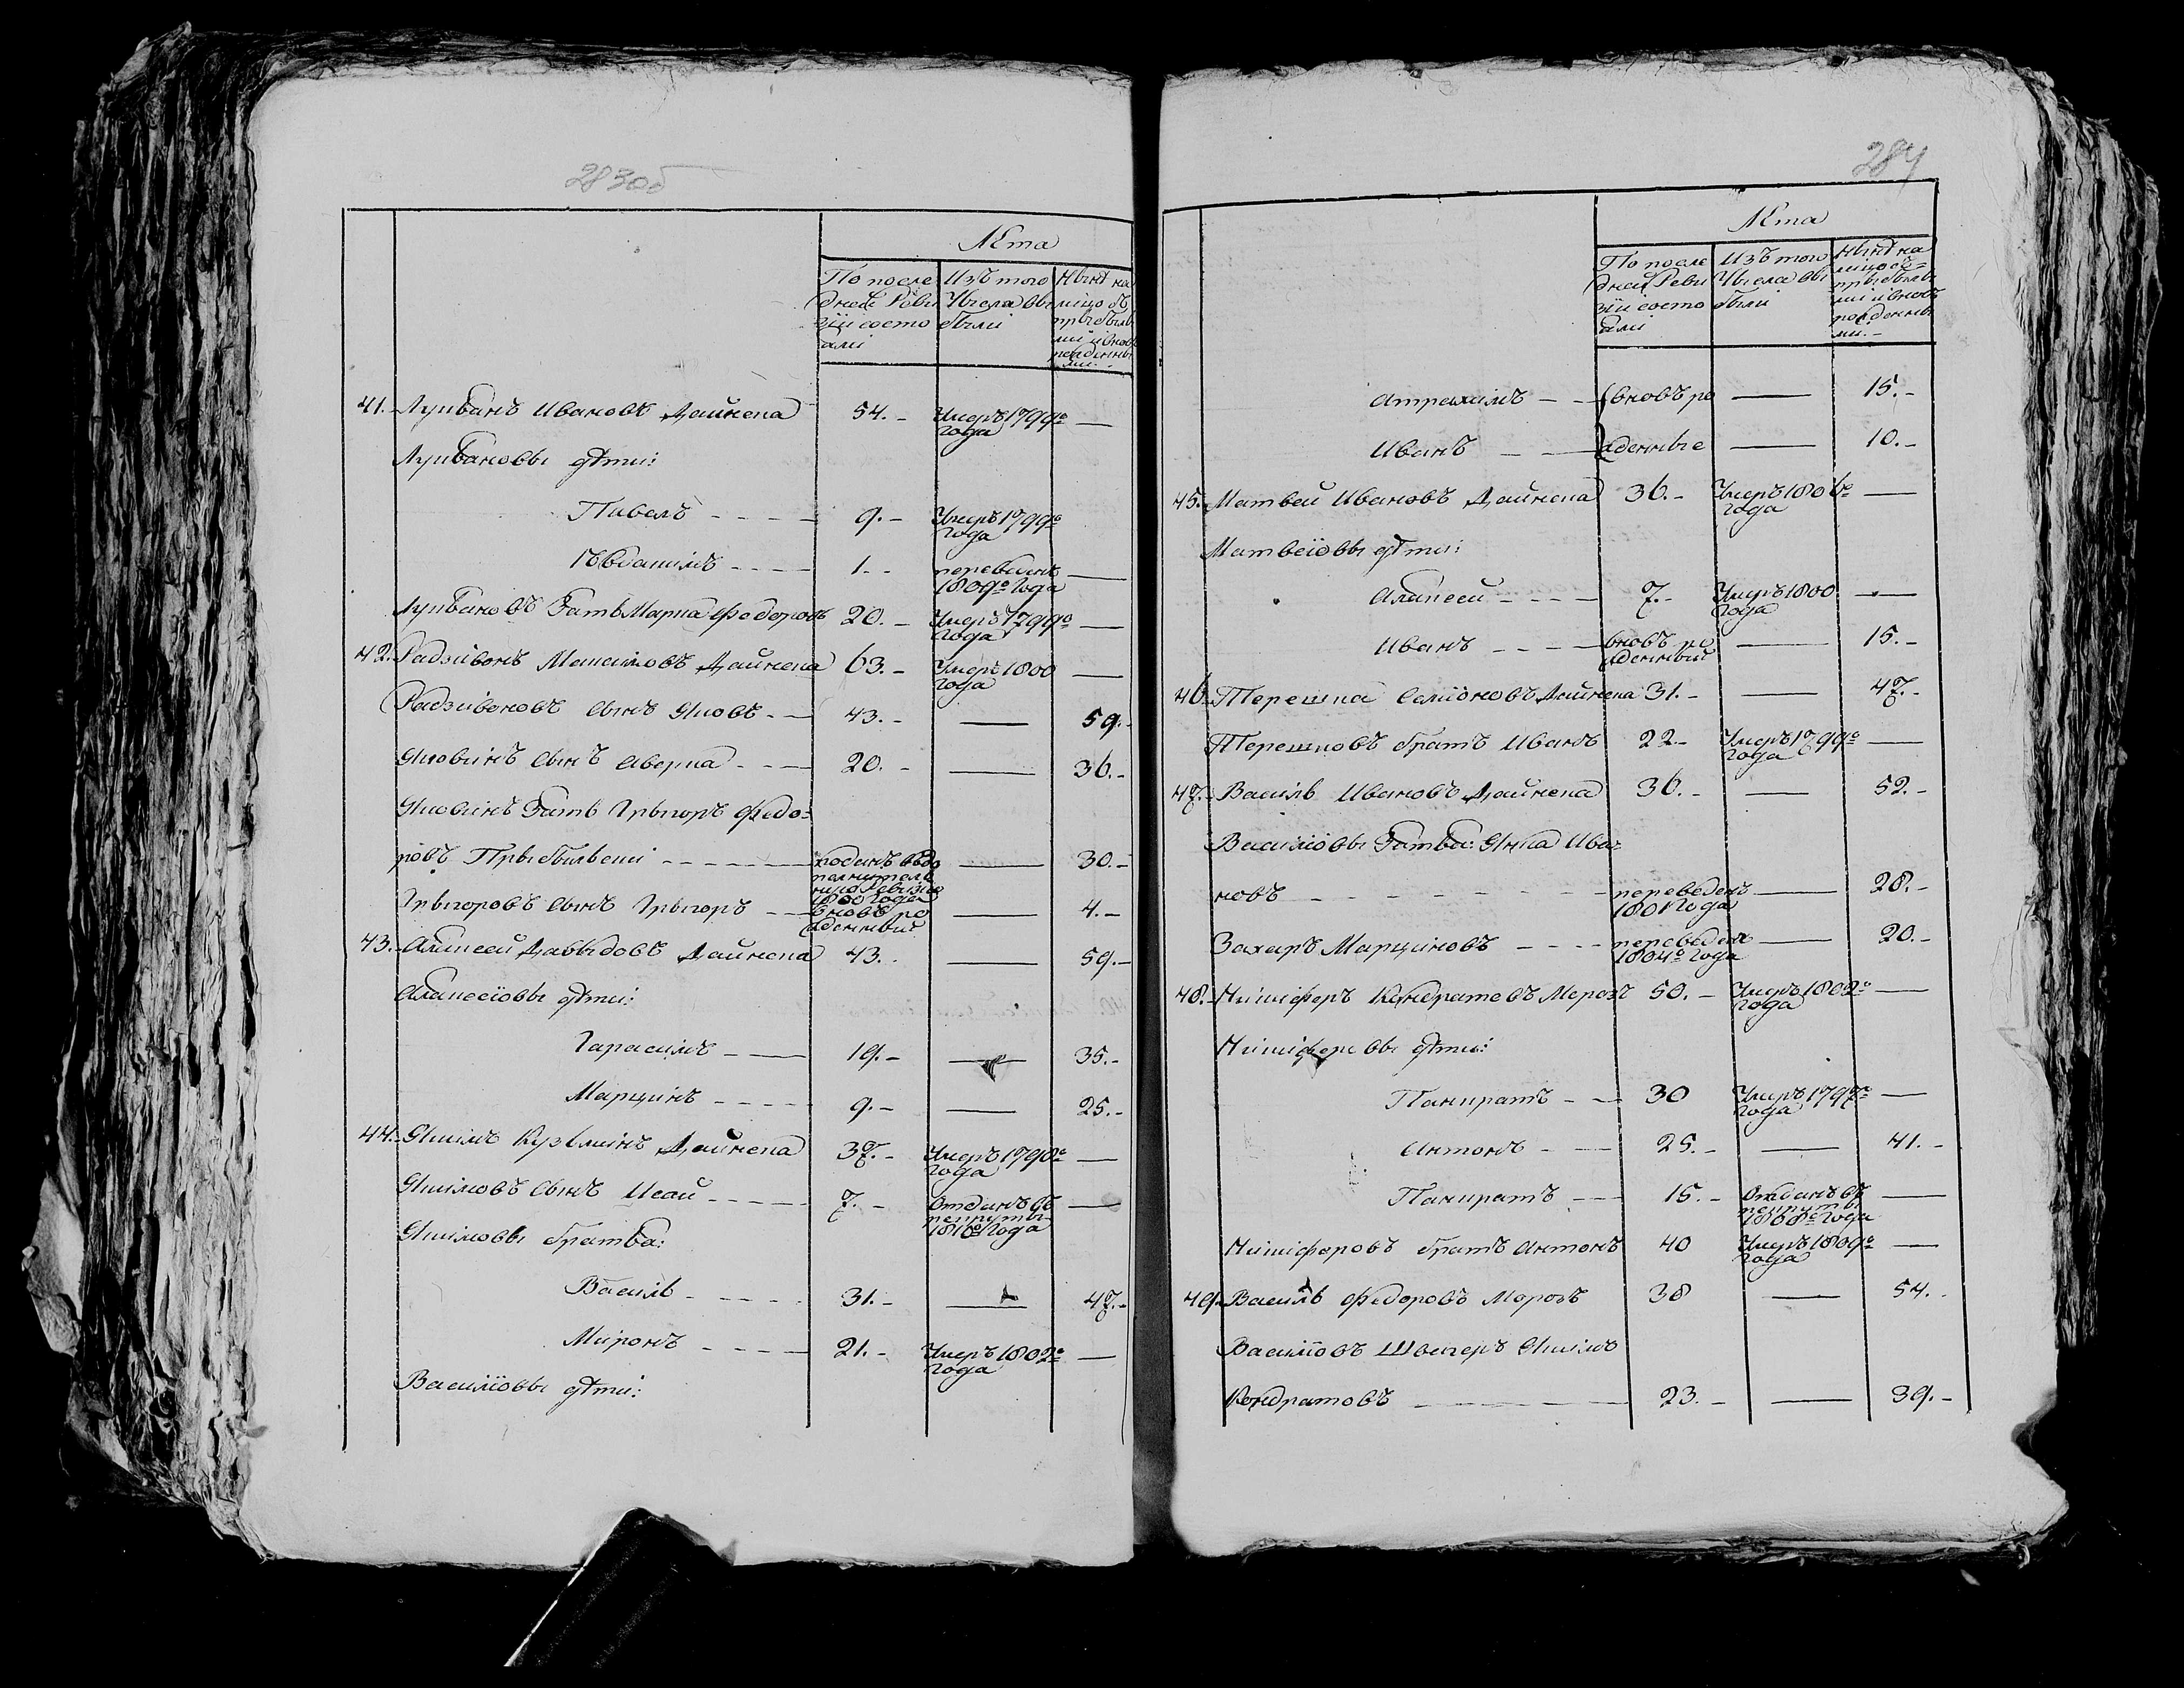 283об
Лѣта
По после
дней Реви
зіи состо
али
Изъ того
Числа вы
были
Нынѣ на
лицо съ
прыбылы
ми и вновь
рожденны
ми.
41. Лукьянъ Ивановъ Дайнека 54. Умеръ 1799го года —
Лукьяновы дѣти:
Павелъ 9. Умеръ 1799го года
1. переведенъ 1809го Года —
Лукьяновъ Зать Марка Федоровъ 20. Умеръ 1799го года —
42. Радзивонъ Максимовъ Дайнека 63. Умеръ 1800 года —
Радзивоновъ Сынъ Яковъ 43. — 59.
Яковинъ Сынъ Аверка 20. — 36.
Яковинъ Зать Грыгоръ Федо=
ровъ Прыбылвшій поданъ въ до
полнитель
ную Ревизію
1800 Года — 30.
Грыгоровъ Сынъ Грыгоръ вновь ро
жденный — 4.
43. Алексей Давыдовъ Дайнека 43. — 59.
Алексеіовы дѣти:
Гарасимъ 19. — 35.
Марцинъ 9. — 25.
44. Якимъ Кузьминъ Дайнека 37. Умеръ 1798го года —
Якимовъ Сынъ Исай 7. Отданъ въ рекруты 1810го Года —
Якимовы братья:
Василь 31. — 47.
Миронъ 21. Умеръ 1802го года —
Василіовы дѣти:
284
Лѣта
По после
дней Реви
зіи состо
али
Изъ того
Числа вы
были
Нынѣ на
лицо съ
прыбылы
ми и вновь
рожденны
ми.
Атрахимъ вновь ро — 15.
Иванъ жденные — 10.
45. Матвей Ивановъ Дайнека 36. Умеръ 1806го года —
Матвеіовы дѣти:
Алексей 7. Умеръ 1800 года —
Иванъ вновь ро
жденный — 15.
46. Терешка Семіоновъ Дайнека 31. — 47.
Терешковъ братъ Иванъ 22. Умеръ 1799го года —
47. Василь Ивановъ Дайнека 36. — 52.
Василіовы Затья: Янка Ива=
новъ переведенъ 1801 Года — 28.
Захаръ Марциновъ переведенъ 1804го Года — 20.
48. Никифоръ Кондратовъ Морозъ 50. Умеръ 1802го года —
Никифоровы дѣти:
Панкратъ 30 Умеръ 1797го года —
Антонъ 25. — 41.
Панкратъ 15. Отданъ въ рекруты 1808го Года —
Никифоровъ братъ Антонъ 40 Умеръ 1809го года —
49. Василь Федоровъ Морозъ 38 — 54.
Василіовъ Швагеръ Якимъ
Кондратовъ 23. — 39.